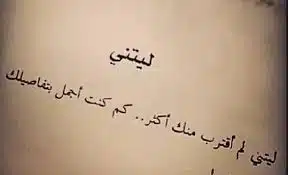 ليتني
ليتني لم أقترب منك أكثر.. كم كنت أجمل بتفاصيلك